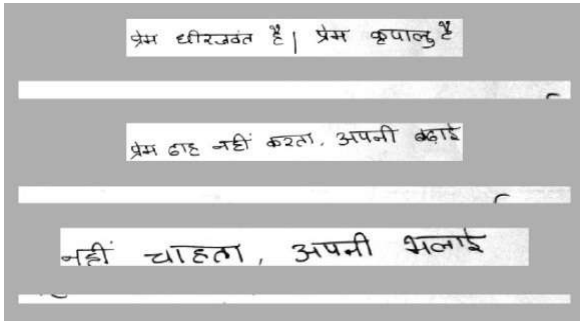 प्रेम धीरजवंत है। प्रेम कृपालु है
प्रेम डाह नहीं करता, अपनी बढ़ाई
नहीं चाहता, अपनी भलाई